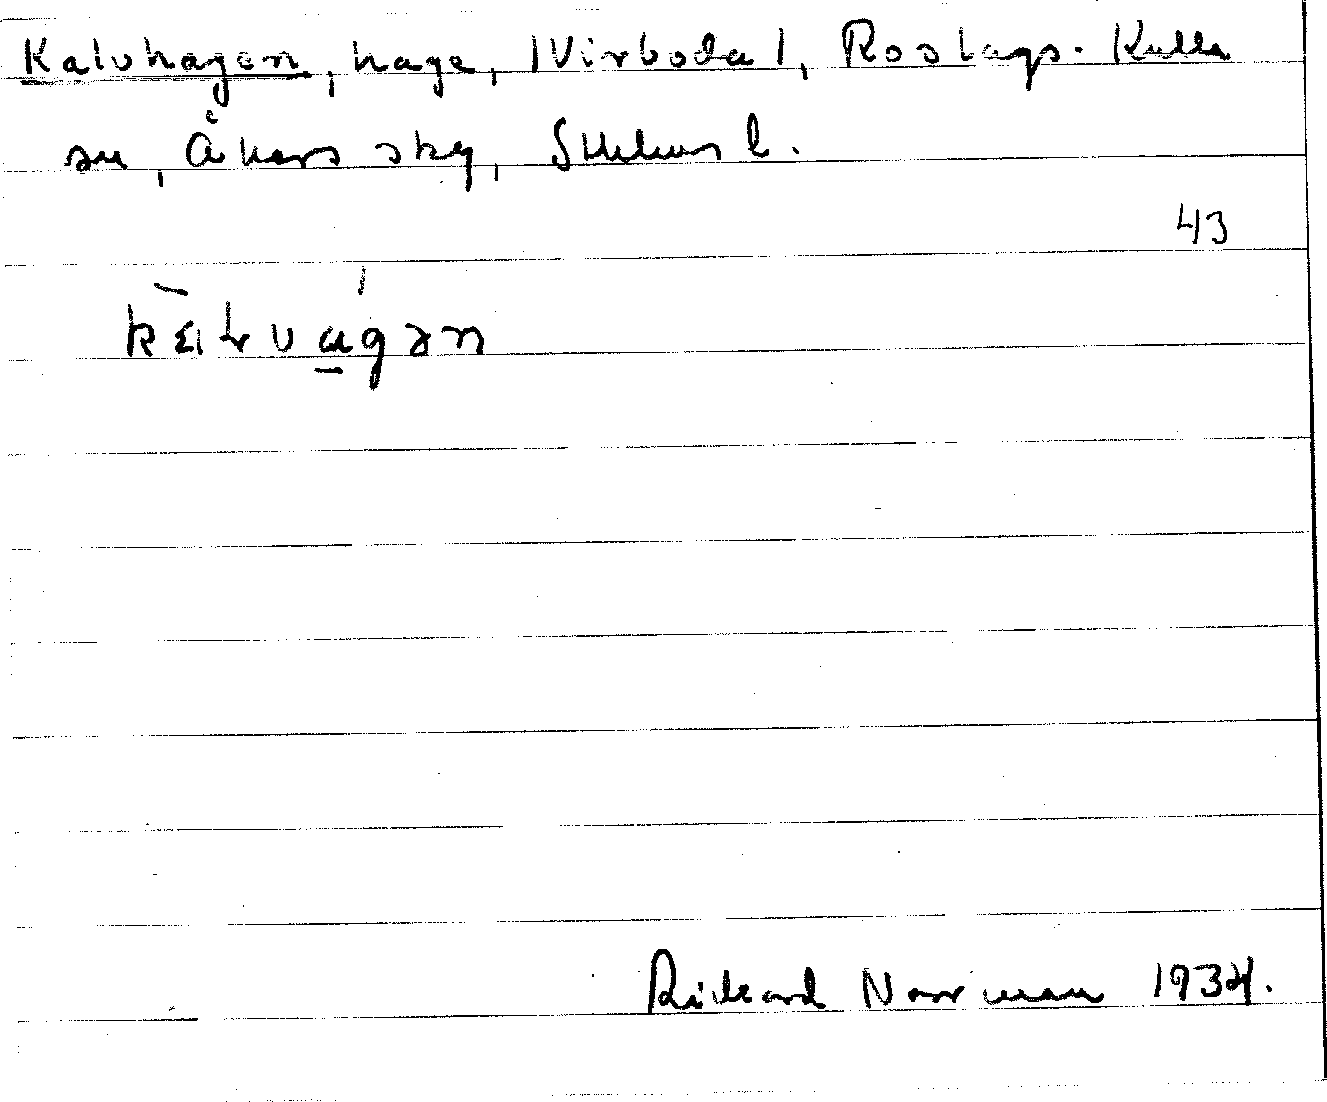 Kalvhagen, hage, |Virboda|, Roslags-Kulla
sn, Åkers skg, Sthlms l.
43
kalvágən
Rickard Norrman 1934.